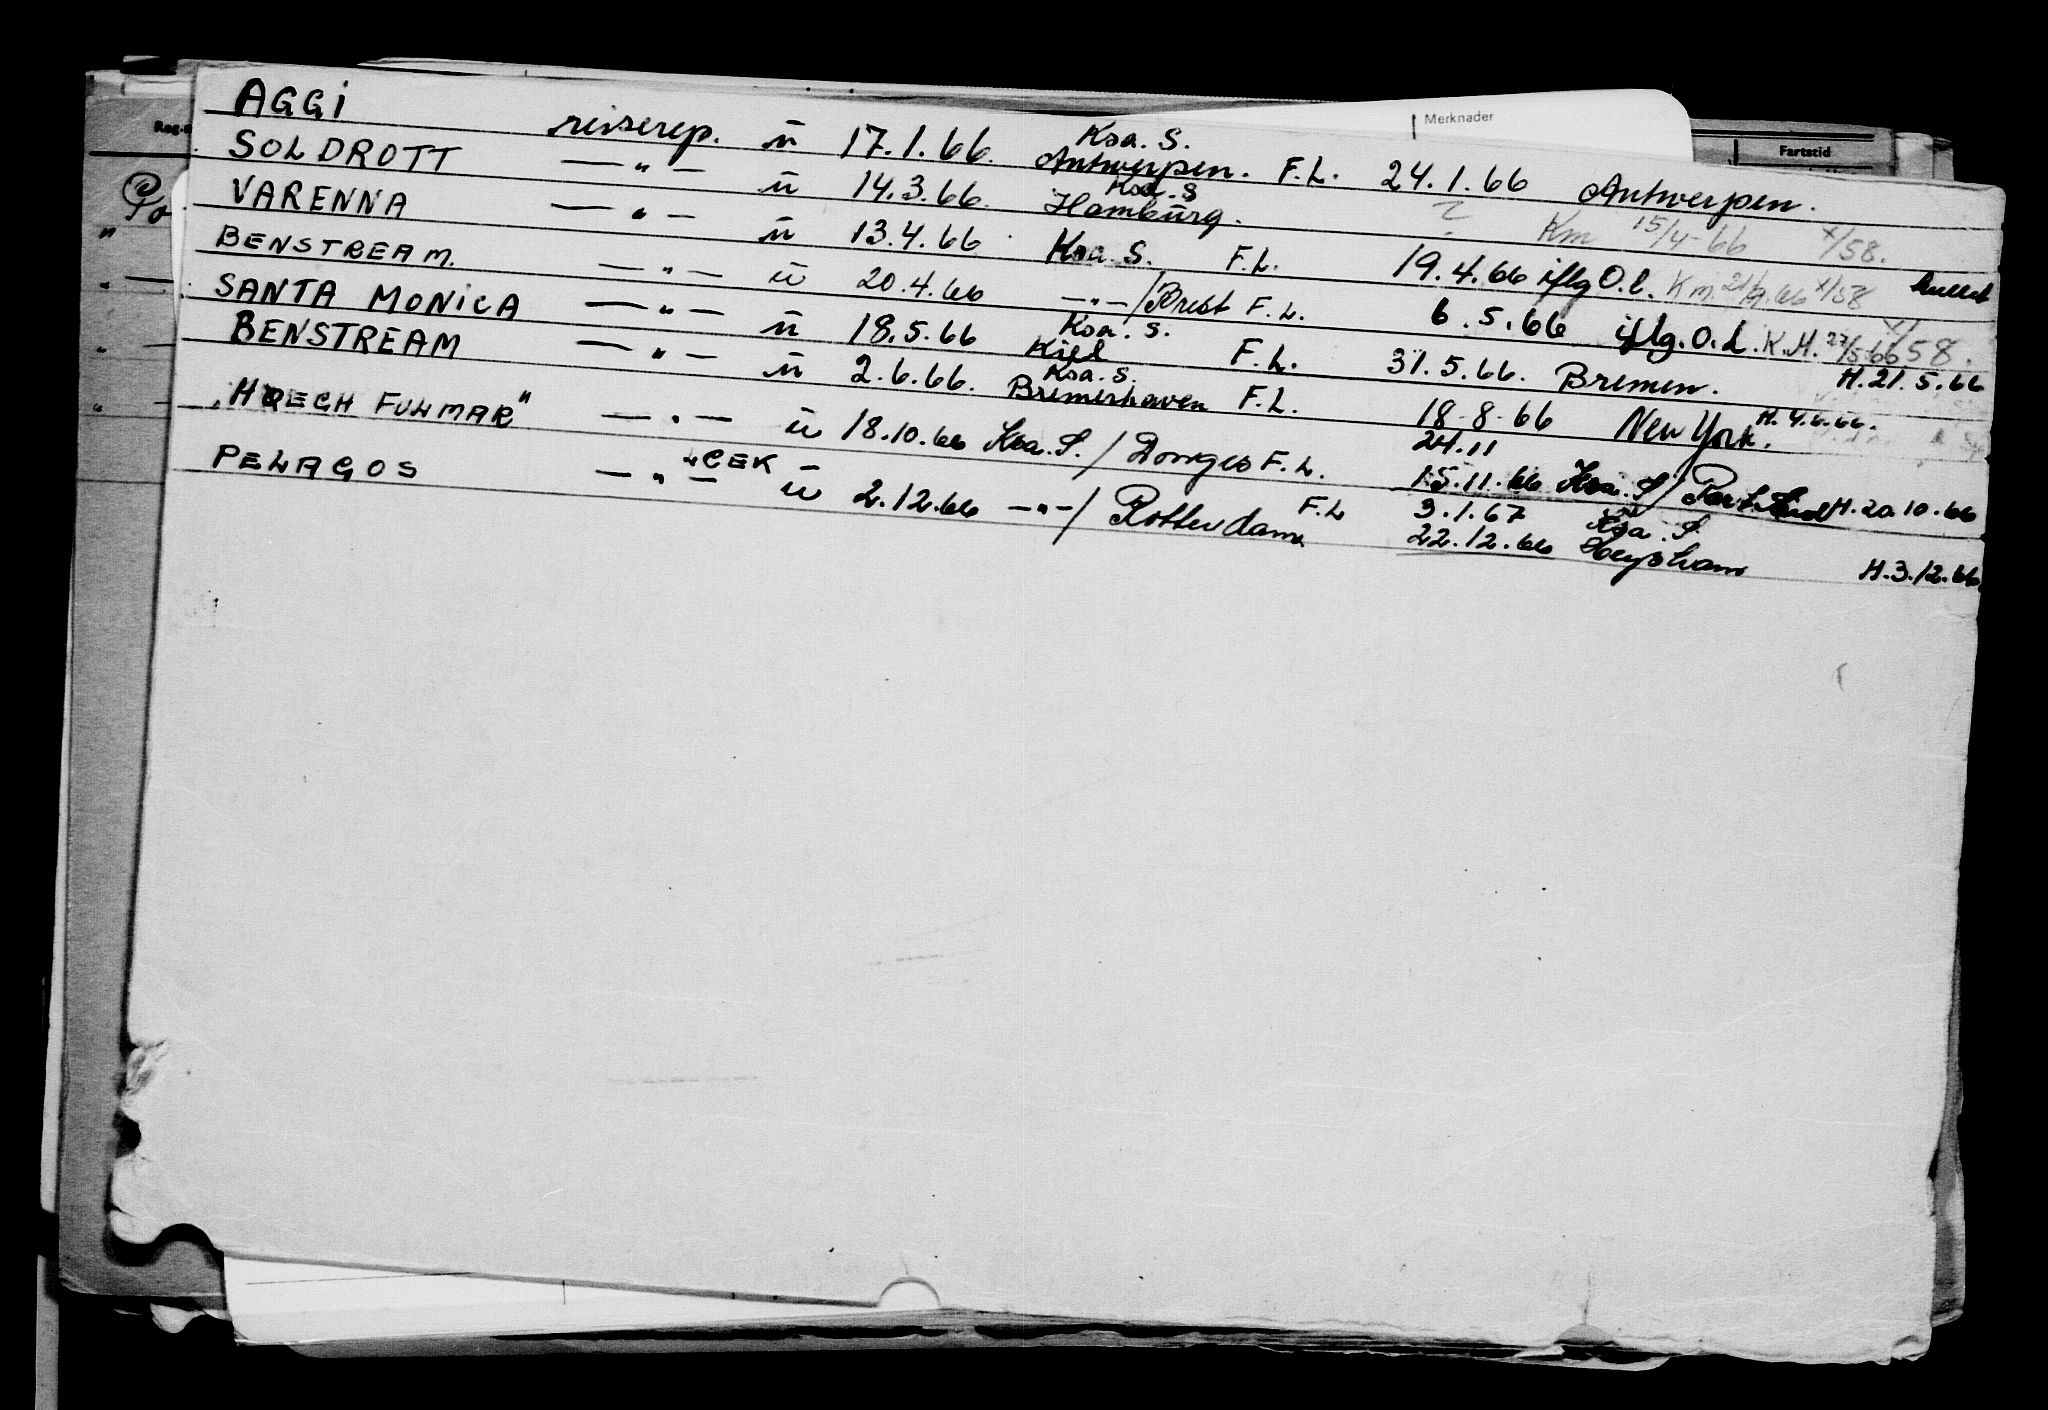 Merknader
Fartstid
AGGI reiserep. ū 17.1.66. Ksa. S. Antwerpen. F.L. 24.1.66 Antwerpen.
SOLDROTT —"— ū 14.3.66. Ksa. S Hamburg. ? Km 15/4-66 x/58.
VARENNA —"— ū 13.4.66 Ksa. S. F.L. 19.4.66 iflg O.l. Km. x/58
BENSTREAM. —"— ū 20.4.66 —"—/Brest F.L. 6.5.66 iflg. O.L. K.M. 27/5-66 58.
SANTA MONICA —"— ū 18.5.66 Ksa. S. Kiel F.L. 31.5.66. Bremen. H.21.5.66
BENSTREAM —"— ū 2.6.66. Ksa. S. Bremerhaven F.L. 18-8-66 New York. H.4.6.66.
"HOECH FULMAR" —"— ū 18.10.66 Ksa. S. / Donges F.L. 24.11 15.11.66 Ksa. S/ H.20.10.66
PELAGOS —"— ū 2.12.66 —"—/ Rotterdam F.L 3.1.67 22.12.66 Ksa. S. Heysham H.3.12.66
Po
"
"
"
"